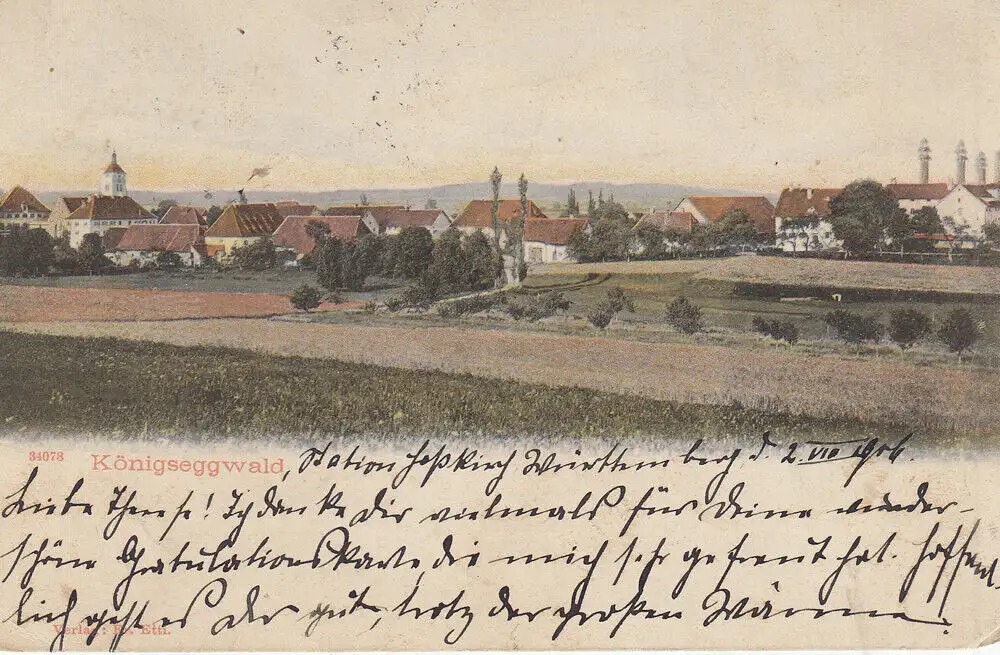 34078 Königseggwald, Station Hoßkirch Württemberg d. 2. VIII 1906.
Liebe Therese! Ich danke Dir vielmals für Deine wunder-
schöne Gratulationskarte, die mich sehr gefreut hat. Hoffent-
lich geht es Dir gut, trotz der großen Wärme.
Verlag: Etti.